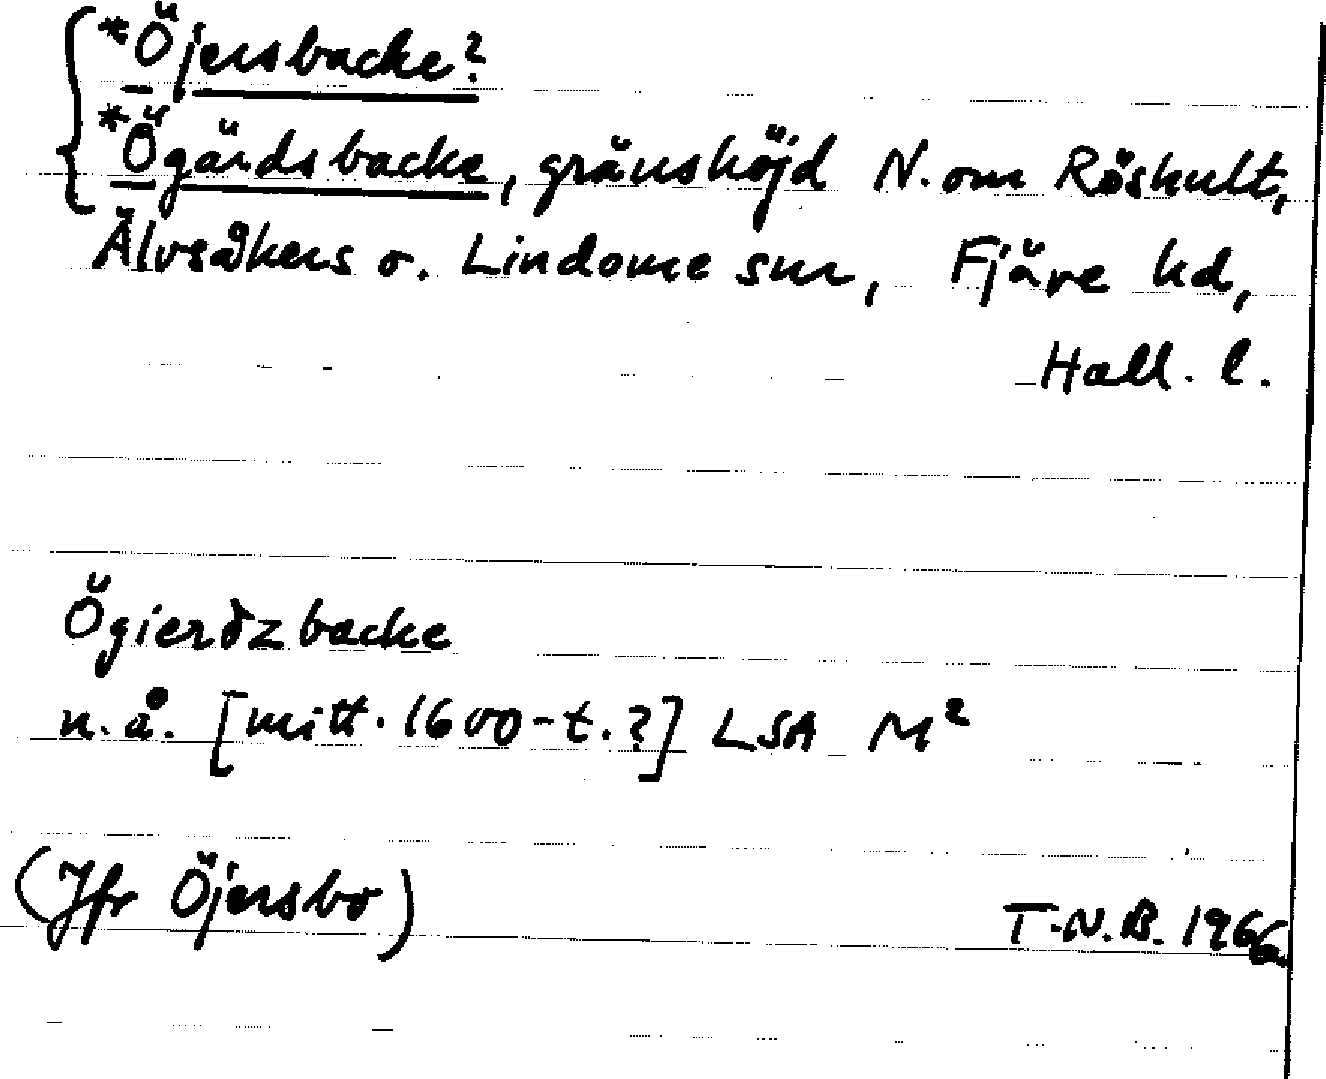 *Öjersbacke?
*Ögärdsbacke, gränshöjd N. om Röskult,
Älvsåkers o. Lindome snr, Fjäre hd,
Hall. l.
Ögierdzbacke
n.å. [mitt. 1600-t.?] LSA M²
(Jfr Öjersbo)
T.N.B. 1966.